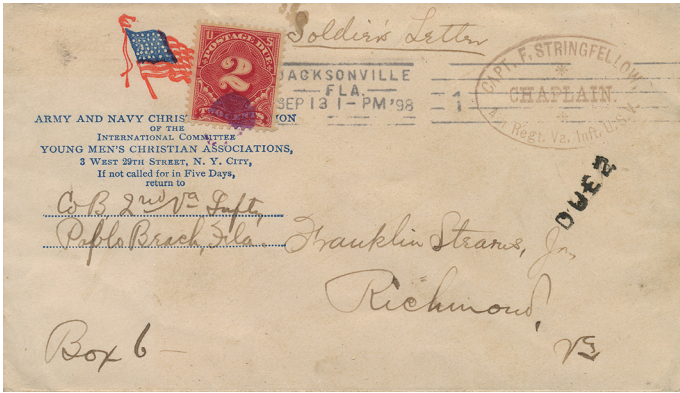 Soldier's Letter
U S
POSTAGE DUE
2
TWO CENTS
JACKSONVILLE
FLA.
SEP 13 1-PM '98
1
CAPT. F. STRINGFELLOW,
CHAPLAIN.
Regt. Va. Inft. U.S.V.
ARMY AND NAVY CHRIS ON
OF THE
INTERNATIONAL COMMITTEE
YOUNG MEN'S CHRISTIAN ASSOCIATIONS,
3 WEST 29TH STREET, N. Y. CITY,
If not called for in Five Days,
return to
Co B, 2nd Va Infty,
Pablo Beach, Fla.
DUE 2
Franklin Stearns, Jr,
Richmond,
Va
Box 6 —